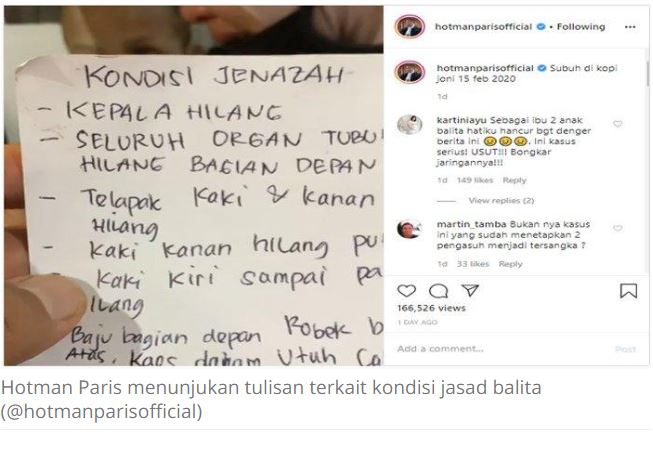 KONDISI JENAZAH
- KEPALA HILANG
- SELURUH ORGAN TUBU
HILANG BAGIAN DEPAN
- Telapak Kaki & Kanan
Hilang
- Kaki Kanan hilang
Kaki Kiri sampai
ilang
Baju bagian depan Robek
Atas. Kaos dalam Utuh
hotmanparisofficial • Following
...
hotmanparisofficial Subuh di kopi
joni 15 feb 2020
1d
kartiniayu Sebagai ibu 2 anak
balita hatiku hancur bgt denger
berita ini 😢😢😢. Ini kasus
serius! USUT!!! Bongkar
jaringannya!!!
1d 149 likes Reply
View replies (2)
martin_tamba Bukan nya kasus
ini yang sudah menetapkan 2
pengasuh menjadi tersangka ?
1d 33 likes Reply
166,526 views
1 DAY AGO
Add a comment...
Post
Hotman Paris menunjukan tulisan terkait kondisi jasad balita
(@hotmanparisofficial)